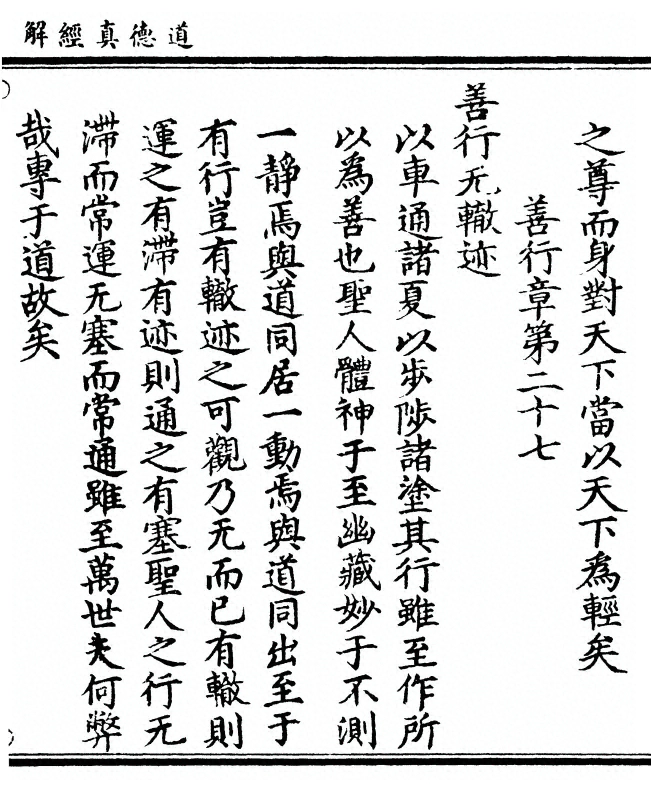 道德真經解
之尊而身對天下當以天下為輕矣
善行章第二十七
善行无轍迹
以車通諸夏以步陟諸塗其行雖至作所
以為善也聖人體神于至幽藏妙于不測
一靜焉與道同居一動焉與道同出至于
有行豈有轍迹之可觀乃无而已有轍則
運之有滯有迹則通之有塞聖人之行无
滯而常運无塞而常通雖至萬世夫何弊
哉專于道故矣